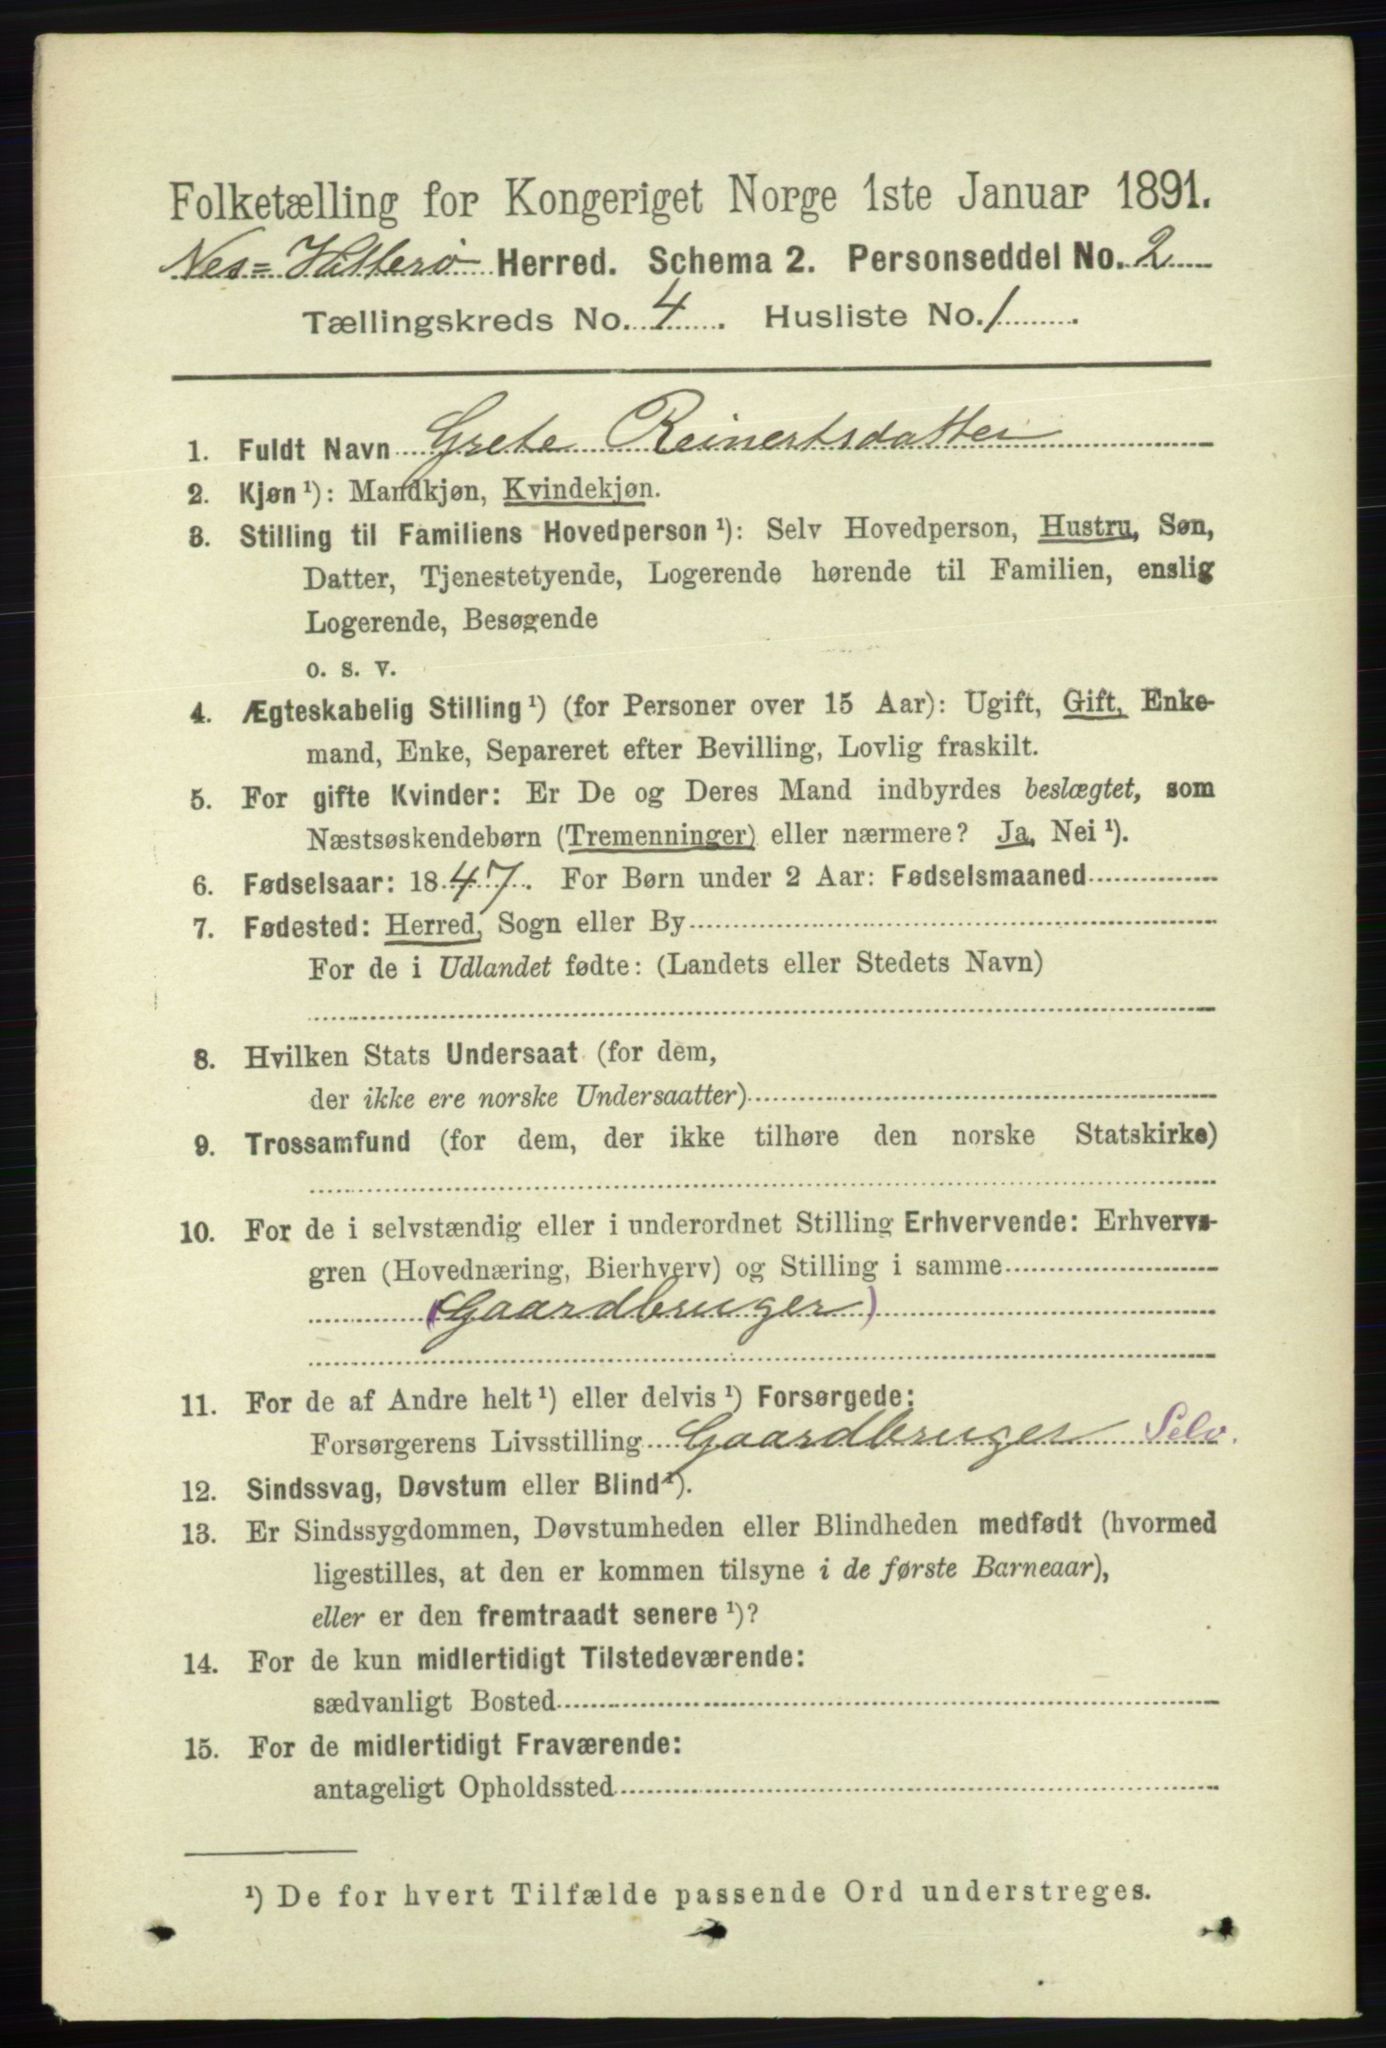 Folketælling for Kongeriget Norge 1ste Januar 1891.
Nes=Hitterø Herred. Schema 2. Personseddel No. 2
Tællingskreds No. 4. Husliste No. 1.
1. Fuldt Navn Grete Reinertsdatter
2. Kjøn ¹): Mandkjøn, Kvindekjøn.
3. Stilling til Familiens Hovedperson ¹): Selv Hovedperson, Hustru, Søn,
Datter, Tjenestetyende, Logerende hørende til Familien, enslig
Logerende, Besøgende
o. s. v.
4. Ægteskabelig Stilling ¹) (for Personer over 15 Aar): Ugift, Gift, Enke-
mand, Enke, Separeret efter Bevilling, Lovlig fraskilt.
5. For gifte Kvinder: Er De og Deres Mand indbyrdes beslægtet, som
Næstsøskendebørn (Tremenninger) eller nærmere? Ja, Nei ¹).
6. Fødselsaar: 1847. For Børn under 2 Aar: Fødselsmaaned
7. Fødested: Herred, Sogn eller By
For de i Udlandet fødte: (Landets eller Stedets Navn)
8. Hvilken Stats Undersaat (for dem,
der ikke ere norske Undersaatter)
9. Trossamfund (for dem, der ikke tilhøre den norske Statskirke)
10. For de i selvstændig eller i underordnet Stilling Erhvervende: Erhvervs-
gren (Hovednæring, Bierhverv) og Stilling i samme
(Gaardbruger)
11. For de af Andre helt ¹) eller delvis ¹) Forsørgede:
Forsørgerens Livsstilling Gaardbruger Selv.
12. Sindssvag, Døvstum eller Blind ¹).
13. Er Sindssygdommen, Døvstumheden eller Blindheden medfødt (hvormed
ligestilles, at den er kommen tilsyne i de første Barneaar),
eller er den fremtraadt senere ¹)?
14. For de kun midlertidigt Tilstedeværende:
sædvanligt Bosted
15. For de midlertidigt Fraværende:
antageligt Opholdssted
¹) De for hvert Tilfælde passende Ord understreges.